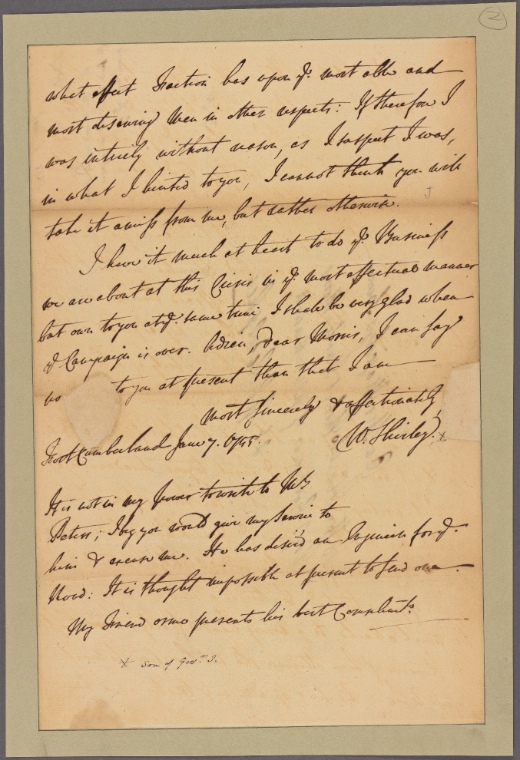 2
what effect Faction has upon ye. most able and
most deserving Men in other respects: If therefore I
was intirely without reason, as I suspect I was,
in what I hinted to you, I cannot think you will
take it amiss from me, but rather otherwise.
I have it much at heart to do ye. Business
we are about at this Crisis in ye. most effectual manner
but own to you at ye. same time, I shall be very glad when
ye. Campaign is over. Adieu, Dear Morris, I can say
no to you at present than that I am
most Sincerely & affectionately
W. Shirley. x
Fort Cumberland June 7. 1755.
It is not in my power to write to Mr.
Peters; I beg you would give my Service to
him & excuse me. He has desired an for ye.
: It is thought impossible at present to send one.
My Friend Orme presents his best Compliments
x Son of Govr. S.